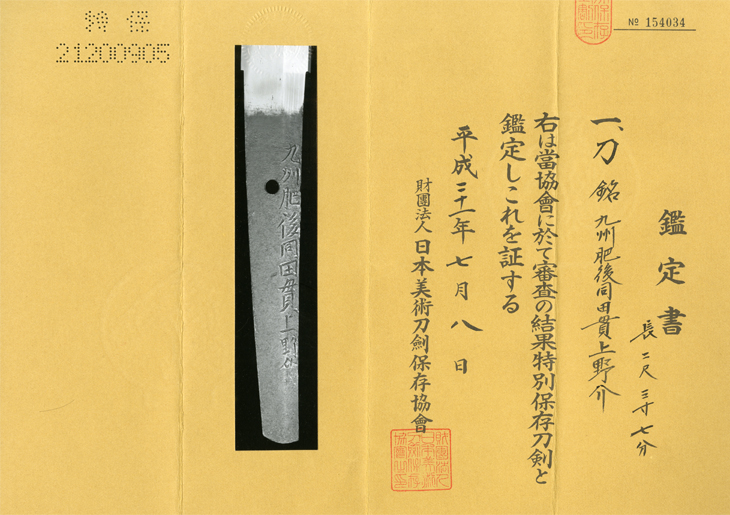 № 154034
鑑定書
長二尺三寸七分
一、刀 銘 九州肥後同田貫上野介
右は當協會に於て審査の結果特別保存刀剣と
鑑定しこれを証する
平成二十一年七月八日
財團法人 日本美術刀劍保存協會
九州肥後同田貫上野介
特保
21200905